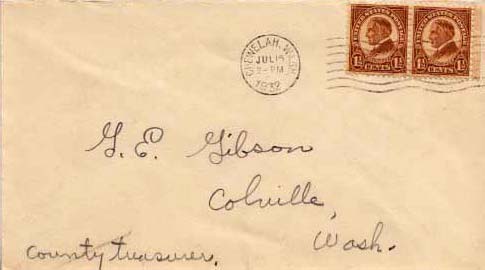 CHEWELAH, WASH.
JUL 15
2-PM
1932
UNITED STATES POSTAGE
1½ CENTS 1½
UNITED STATES POSTAGE
1½ CENTS 1½
G. E. Gibson
Colville,
Wash.
County treasurer.